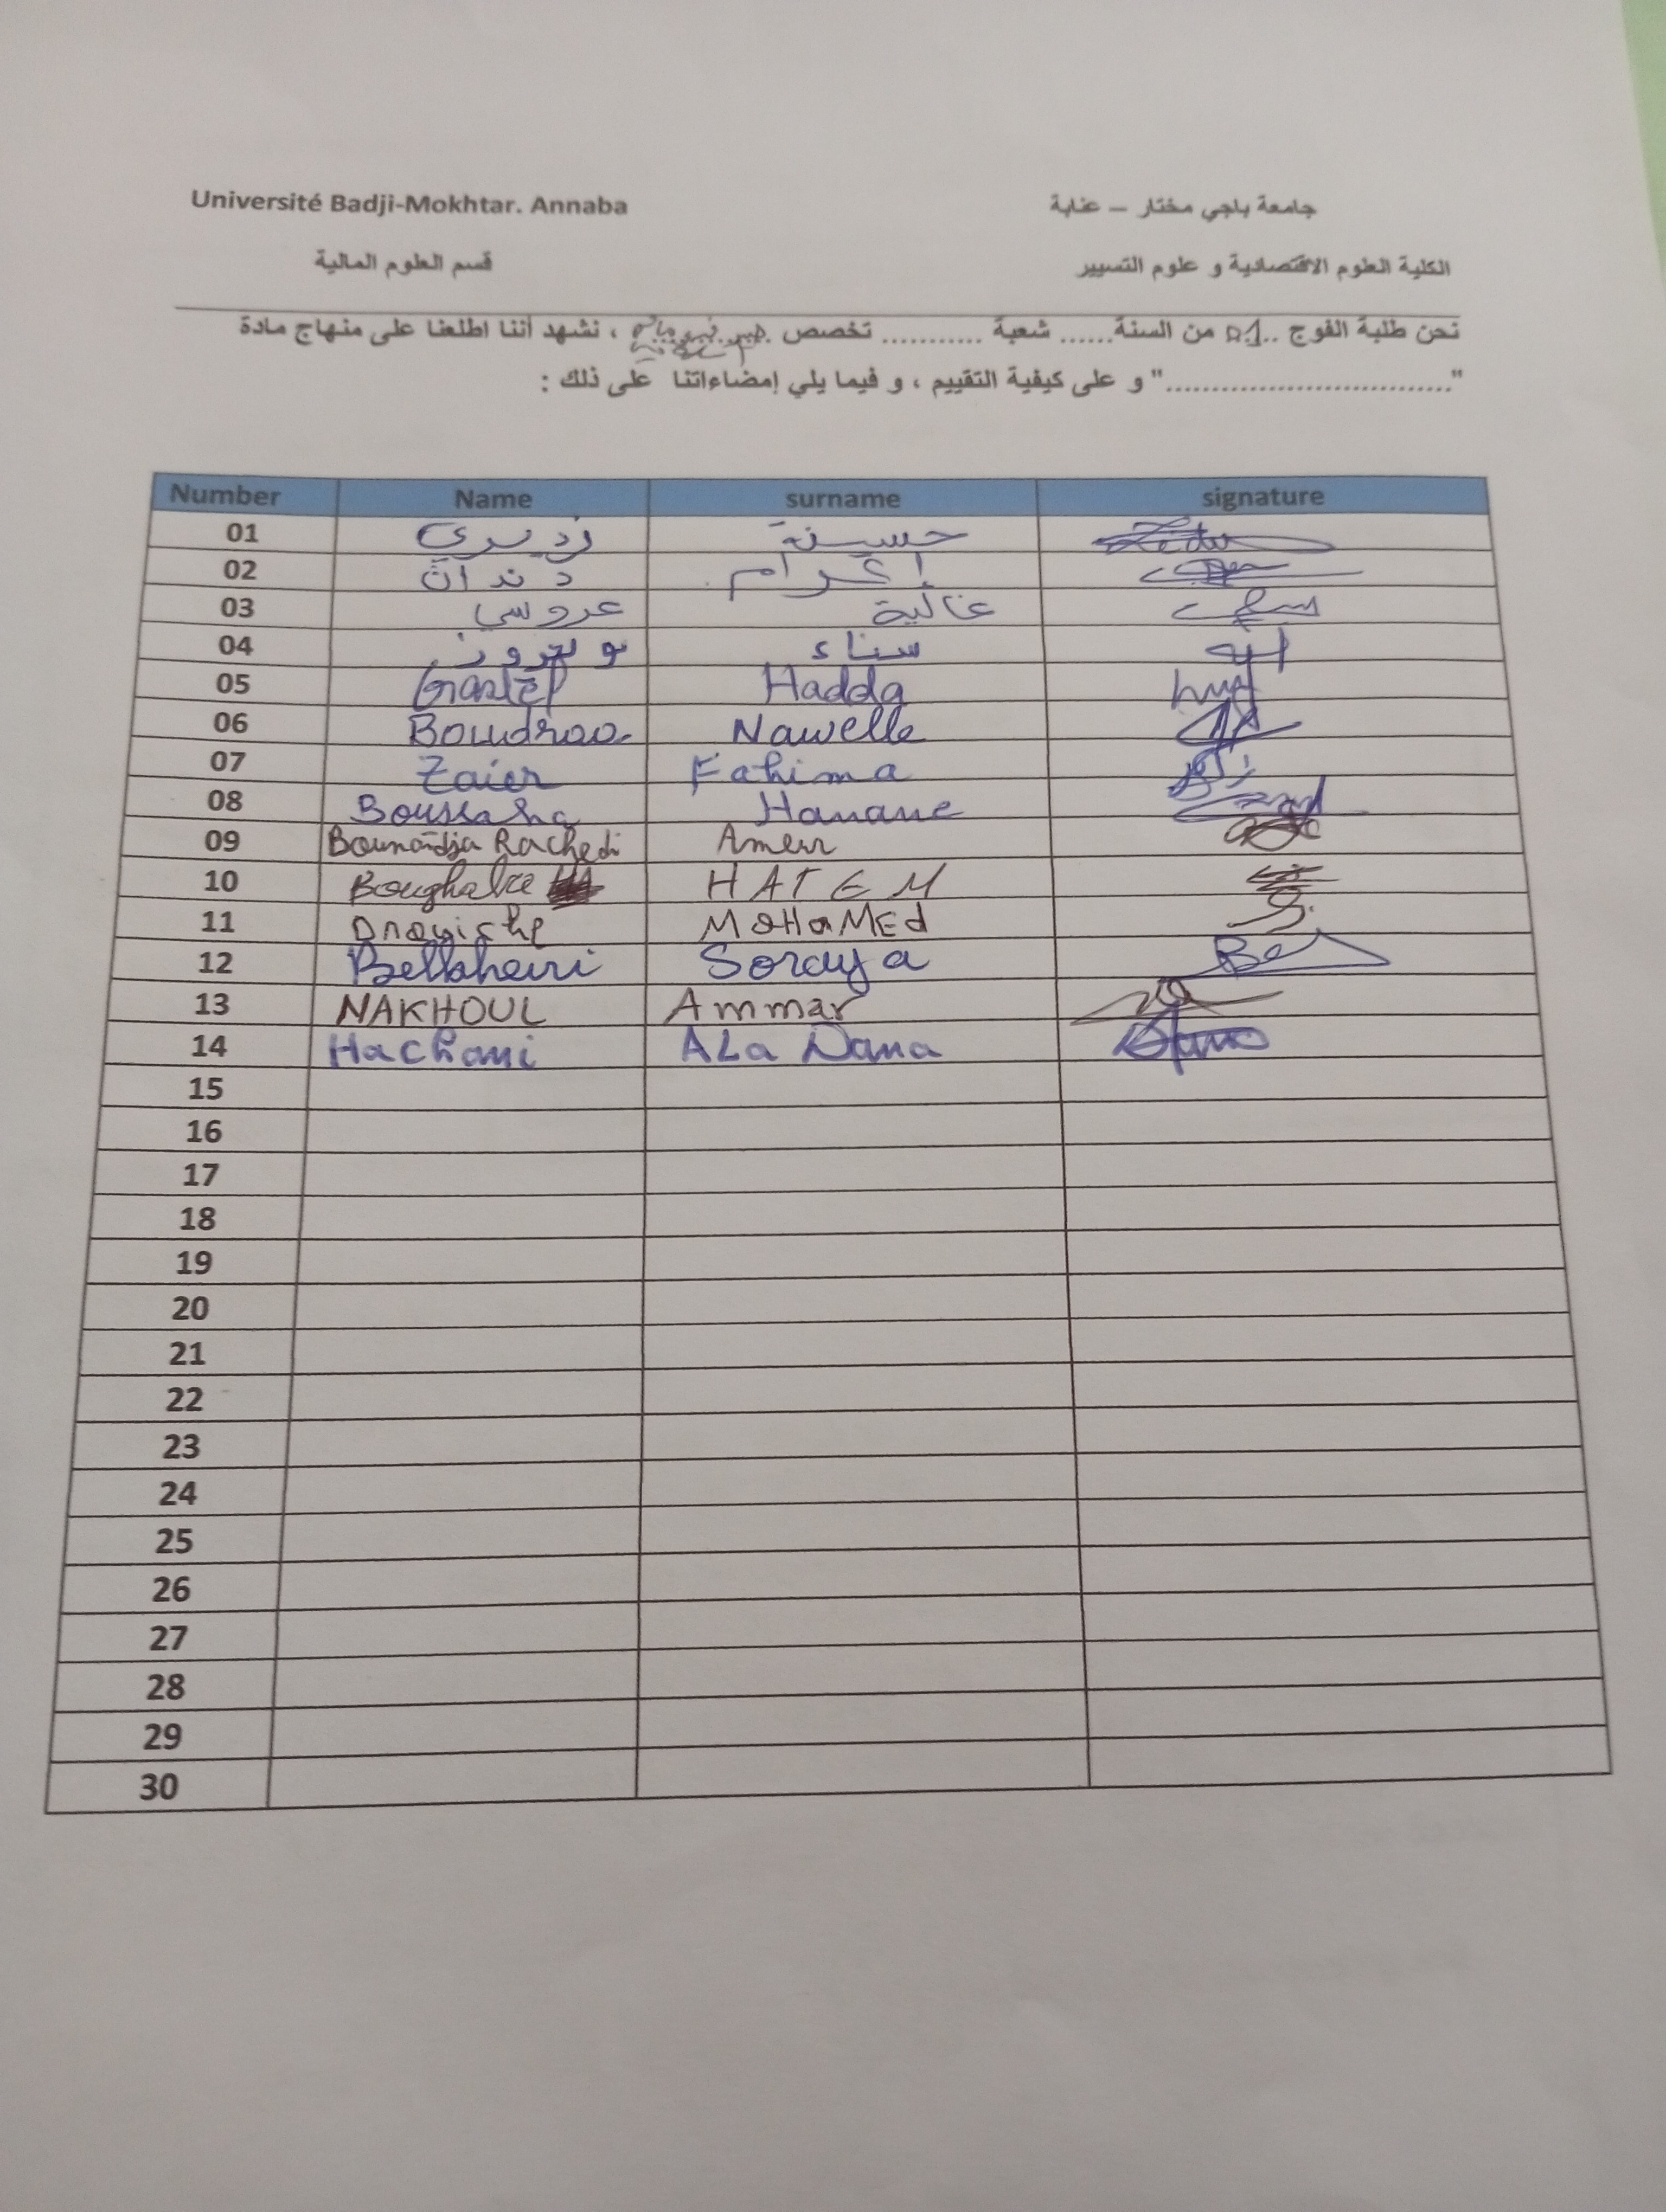 Université Badji-Mokhtar. Annaba جامعة باجي مختار – عنابة
قسم العلوم المالية الكلية العلوم الاقتصادية و علوم التسيير
نحن طلبة الفوج ..01 من السنة...... شعبة ........... تخصص ، نشهد أننا اطلعنا على منهاج مادة
"................................" و على كيفية التقييم ، و فيما يلي إمضاءاتنا على ذلك :
Number Name surname signature
01 زديري حسينة
02 دندان إكرام
03 عروسي غالية
04 سناء
05 Hadda
06 Boudraa Nawelle
07 Zaier Fahima
08 Boussaha Hanane
09 Bounaidja Rachedi Ameur
10 Boughalee HATEM
11 MOHaMEd
12 Belkheiri Soraya Bel
13 NAKHOUL Ammar
14 Hachani ALa Dana
15
16
17
18
19
20
21
22
23
24
25
26
27
28
29
30